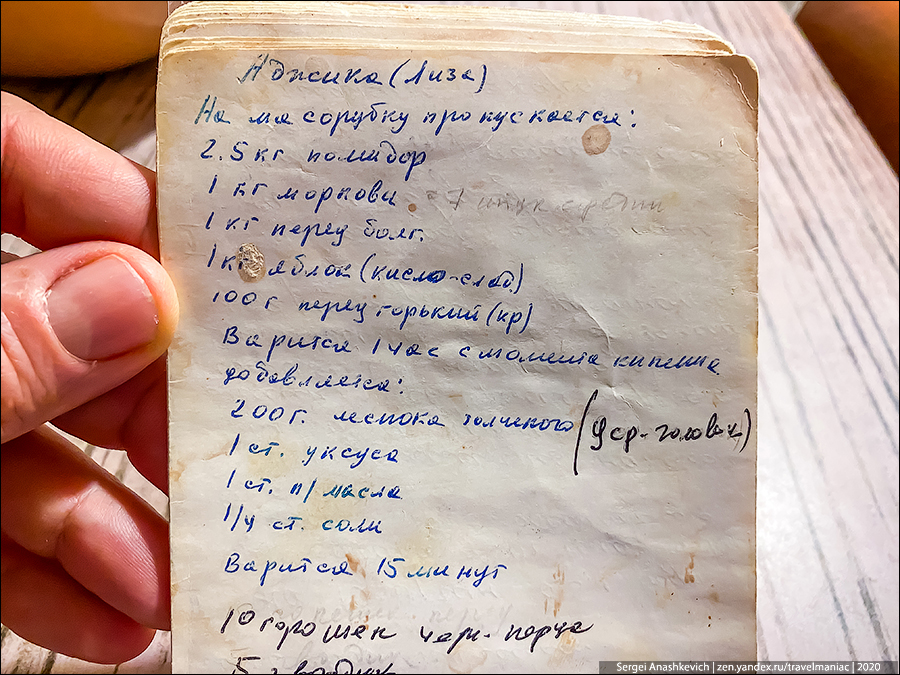 Аджика (Лиза)
На мясорубку пропускается:
2.5 кг помидор
1 кг моркови = 7 штук
1 кг перец болг.
1 кг яблок (кисло-слад.)
100 г перец горький (кр)
Варится 1 час с момента кипения
добавляется:
200 г. чеснока толченого (9 ср. головок)
1 ст. уксуса
1 ст. п/масла
1/4 ст. соли
Варится 15 минут
10 горошен черн. перца
5 гвоздик
Sergei Anashkevich | zen.yandex.ru/travelmaniac | 2020